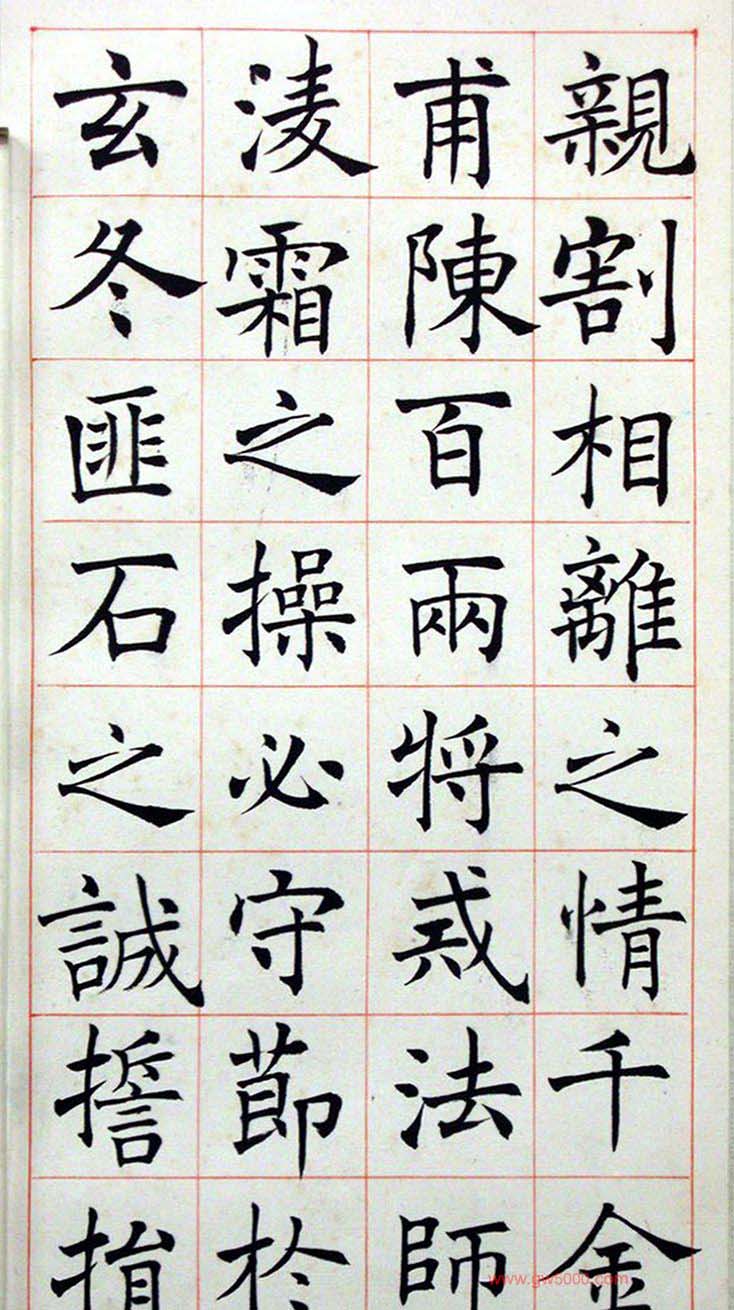 親割相離之情千金
甫陳百兩將戒法師
淩霜之操必守節於
玄冬匪石之誠誓捐
www.gw5000.com